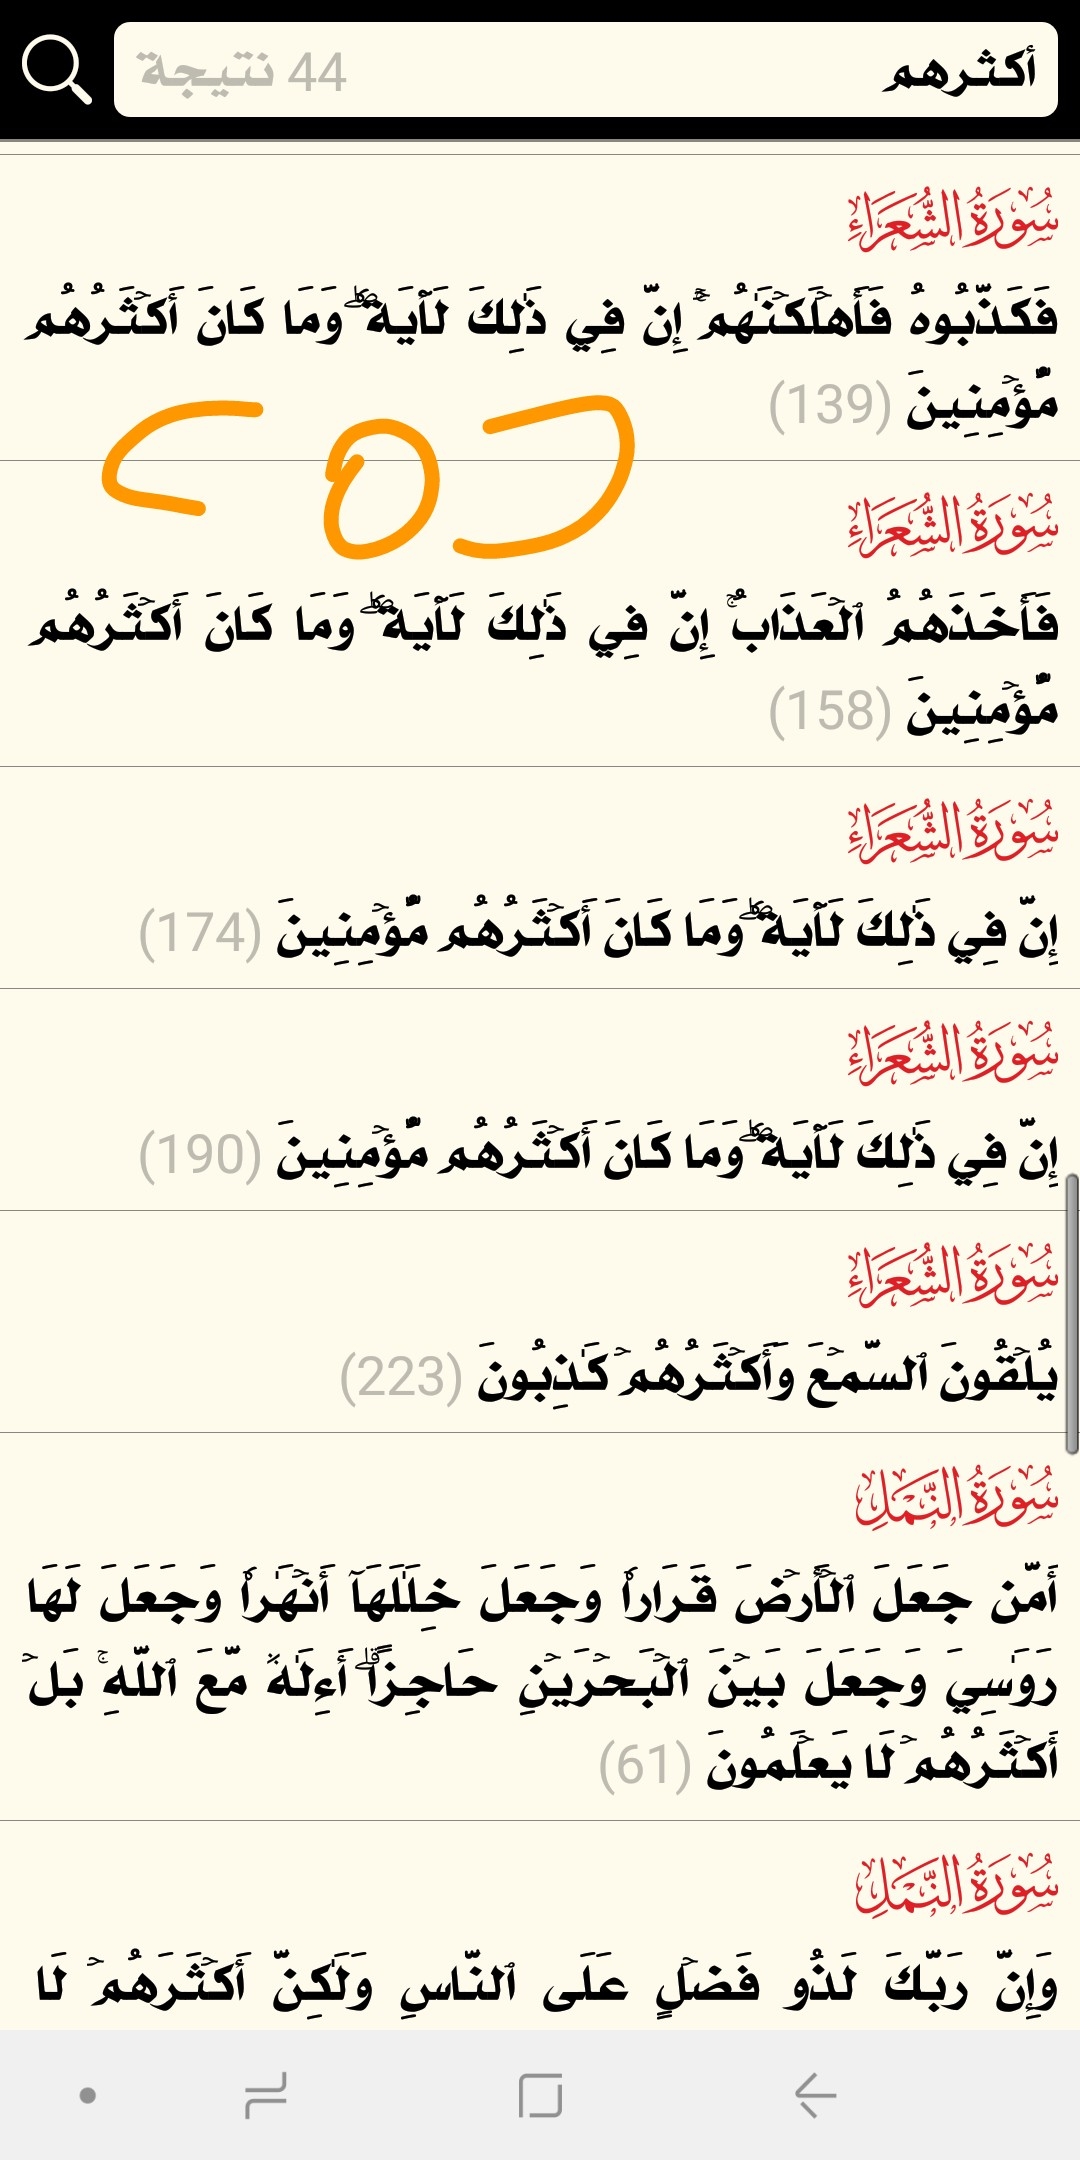 أكثرهم 44 نتيجة
سُورَةُ الشُّعَرَاءِ
فَكَذَّبُوهُ فَأَهۡلَكۡنَٰهُمۡۚ إِنَّ فِي ذَٰلِكَ لَأٓيَةٗۖ وَمَا كَانَ أَكۡثَرُهُم
مُّؤۡمِنِينَ (139)
سُورَةُ الشُّعَرَاءِ
فَأَخَذَهُمُ ٱلۡعَذَابُۚ إِنَّ فِي ذَٰلِكَ لَأٓيَةٗۖ وَمَا كَانَ أَكۡثَرُهُم
مُّؤۡمِنِينَ (158)
سُورَةُ الشُّعَرَاءِ
إِنَّ فِي ذَٰلِكَ لَأٓيَةٗۖ وَمَا كَانَ أَكۡثَرُهُم مُّؤۡمِنِينَ (174)
سُورَةُ الشُّعَرَاءِ
إِنَّ فِي ذَٰلِكَ لَأٓيَةٗۖ وَمَا كَانَ أَكۡثَرُهُم مُّؤۡمِنِينَ (190)
سُورَةُ الشُّعَرَاءِ
يُلۡقُونَ ٱلسَّمۡعَ وَأَكۡثَرُهُمۡ كَٰذِبُونَ (223)
سُورَةُ النَّمۡلِ
أَمَّن جَعَلَ ٱلۡأَرۡضَ قَرَارٗا وَجَعَلَ خِلَٰلَهَآ أَنۡهَٰرٗا وَجَعَلَ لَهَا
رَوَٰسِيَ وَجَعَلَ بَيۡنَ ٱلۡبَحۡرَيۡنِ حَاجِزًاۗ أَءِلَٰهٞ مَّعَ ٱللَّهِۚ بَلۡ
أَكۡثَرُهُمۡ لَا يَعۡلَمُونَ (61)
سُورَةُ النَّمۡلِ
وَإِنَّ رَبَّكَ لَذُو فَضۡلٍ عَلَى ٱلنَّاسِ وَلَٰكِنَّ أَكۡثَرَهُمۡ لَا